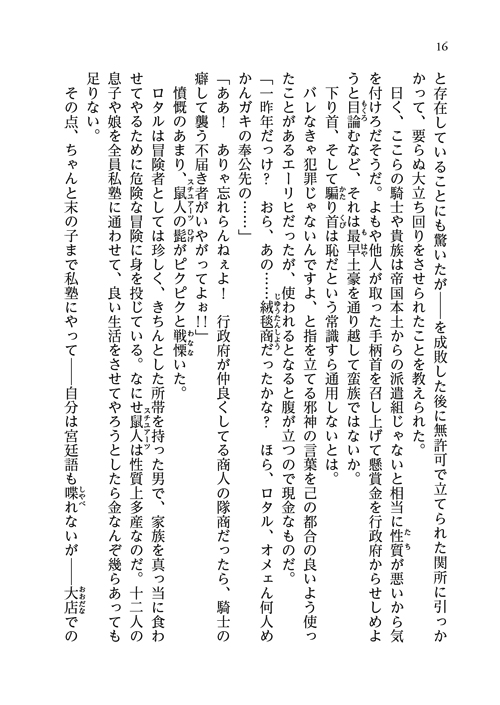 16
と存在していることにも驚いたが――を成敗した後に無許可で立てられた関所に引っか
かって、要らぬ大立ち回りをさせられたことを教えられた。
　曰く、ここらの騎士や貴族は帝国本土からの派遣組じゃないと相当に性質が悪いから気
を付けろだそうだ。よもや他人が取った手柄首を召し上げて懸賞金を行政府からせしめよ
うと目論むなど、それは最早土豪を通り越して蛮族ではないか。
　下り首、そして騙り首は恥だという常識すら通用しないとは。
　バレなきゃ犯罪じゃないんですよ、と指を立てる邪神の言葉を己の都合の良いよう使っ
たことがあるエーリヒだったが、使われるとなると腹が立つので現金なものだ。
「一昨年だっけ？　おら、あの……絨毯商だったかな？　ほら、ロタル、オメェん何人め
かんガキの奉公先の……」
「ああ！　ありゃ忘れらんねぇよ！　行政府が仲良くしてる商人の隊商だったら、騎士の
癖して襲う不届き者がいやがってよぉ!!」
　憤慨のあまり、鼠人の髭がピクピクと戦慄いた。
　ロタルは冒険者としては珍しく、きちんとした所帯を持った男で、家族を真っ当に食わ
せてやるために危険な冒険に身を投じている。なにせ鼠人は性質上多産なのだ。十二人の
息子や娘を全員私塾に通わせて、良い生活をさせてやろうとしたら金なんぞ幾らあっても
足りない。
　その点、ちゃんと末の子まで私塾にやって――自分は宮廷語も喋れないが――大店での